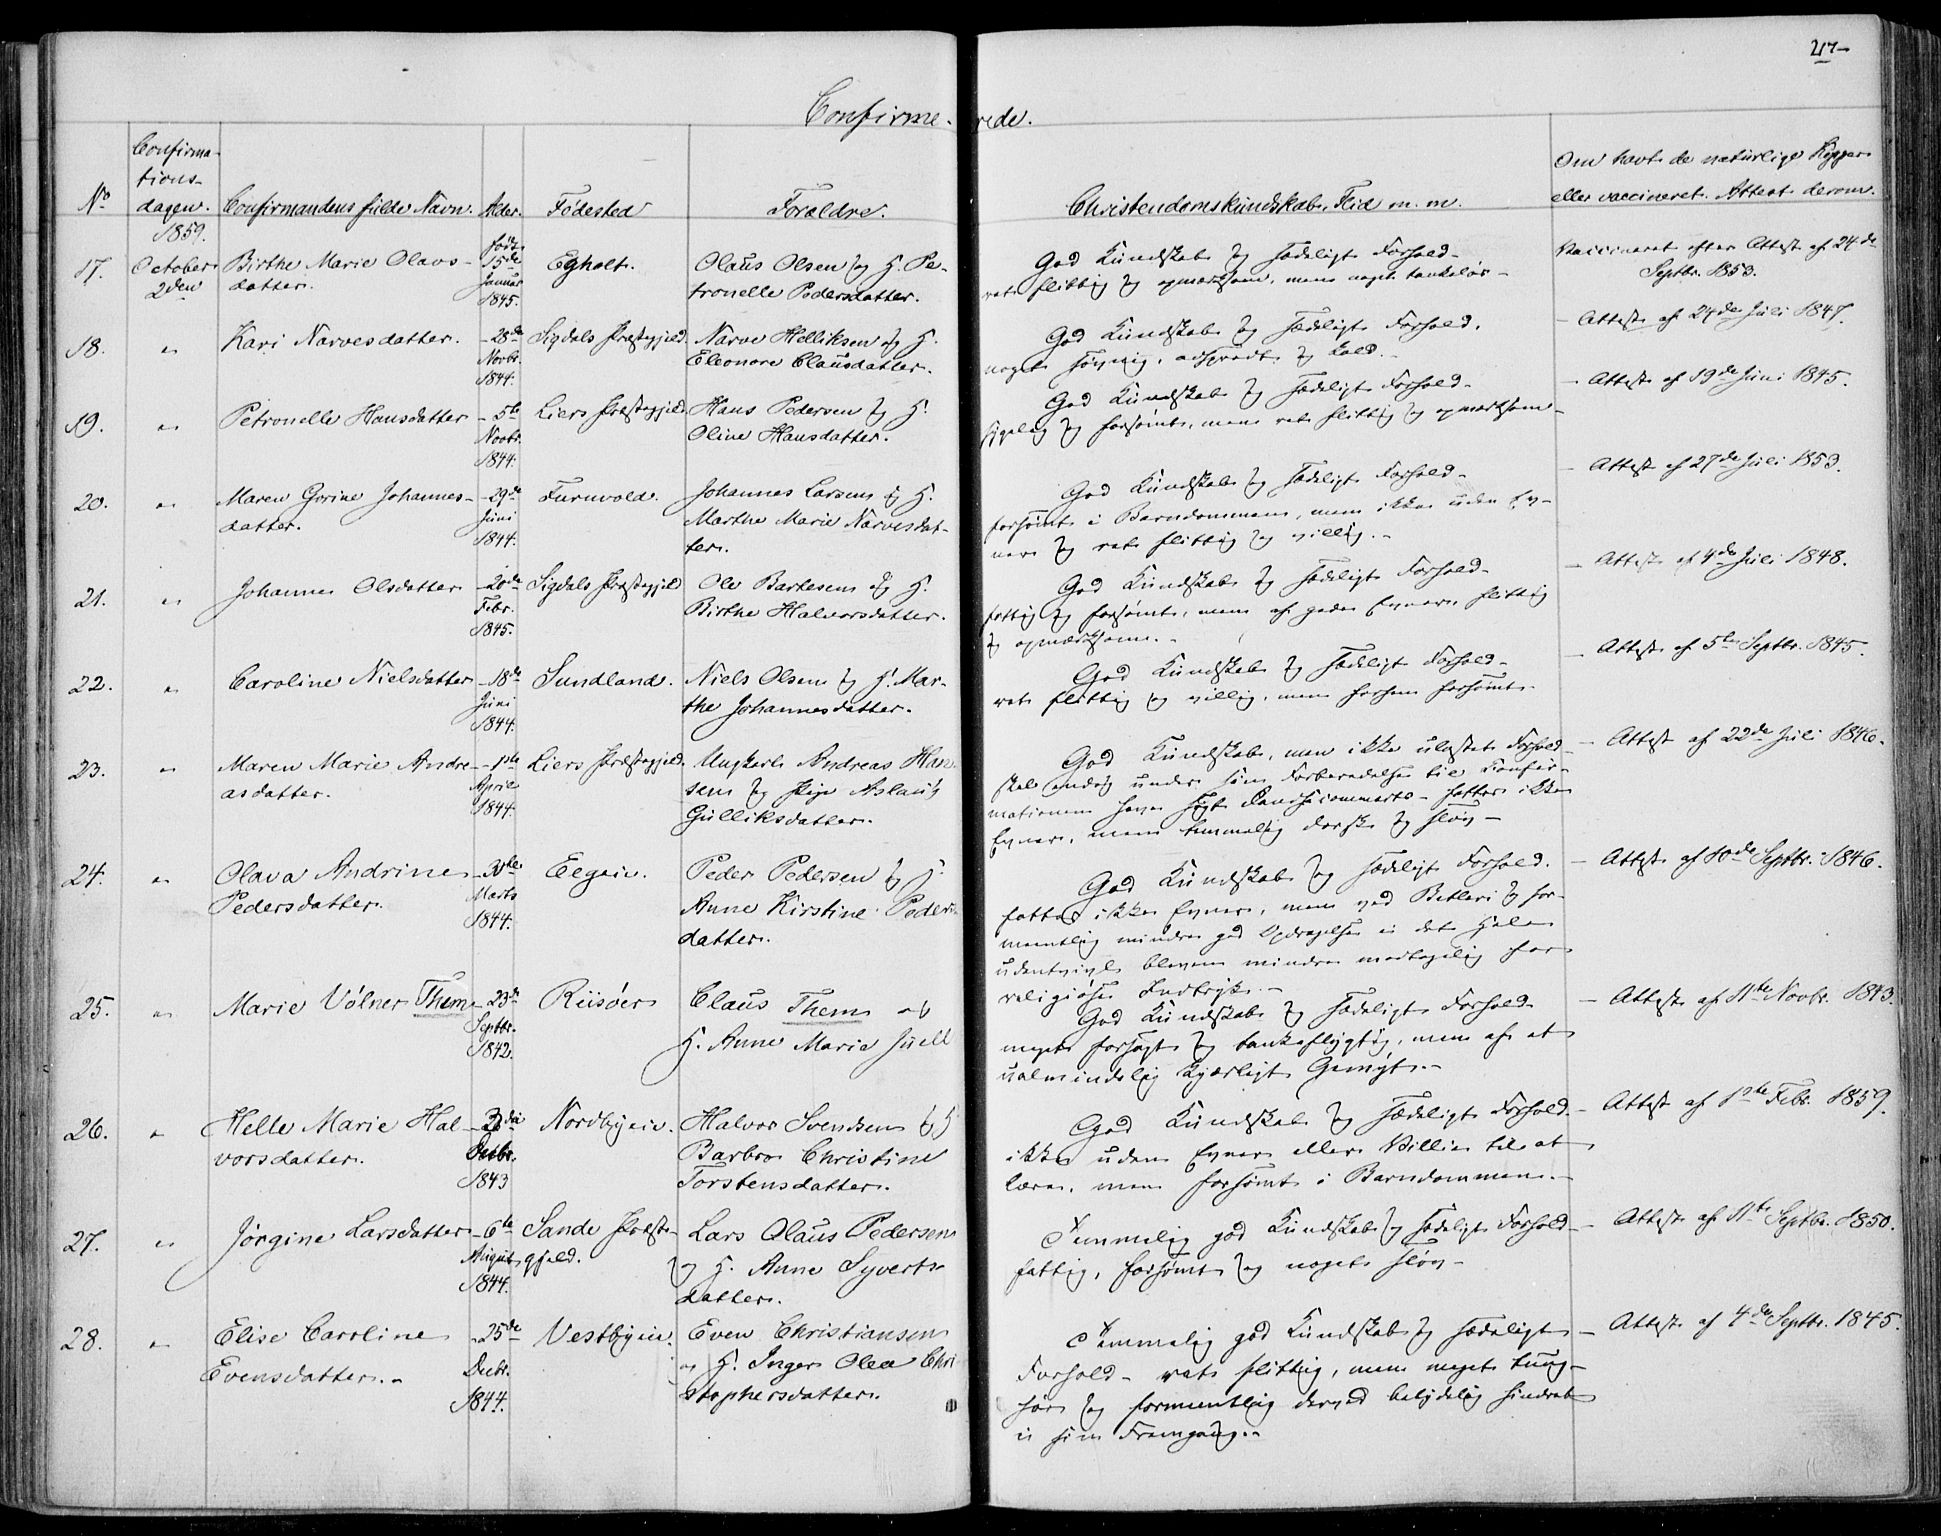 217
Confirmerede.
No
Confirma-
tions-
dagen.
Confirmandens fulde Navn.
Alder.
Fødested
Forældre.
Christendomskundskab, Flid m. m.
Om havt de naturlige Kopper
eller vaccineret. Attest derom.
1859.
17.
October
2den
Birthe Marie Olavs-
datter.
født
15de
Januar
1845.
Egholt.
Olaus Olsen og H. Pe-
tronelle Pedersdatter.
God Kundskab og sædeligt Forhold-
ret flittig og opmærksom, men noget tankeløs-
Vaccineret efter Attest af 24de
Septbr. 1853.
18.
"
Kari Narvesdatter.
- 28de
Novbr.
1844.
Sigdals Præstegjeld
Narve Helliksen og H.
Eleonore Clausdatter.
God Kundskab og sædeligt Forhold.
noget søvnig, adspredt og kold.-
- Attest af 24de Juli 1847.
19.
"
Petronelle Hansdatter
- 5te
Novbr.
1844.
Liers Præstegjeld
Hans Pedersen og H.
Oline Hansdatter.
God Kundskab og sædeligt Forhold-
sygelig og forsømt, men ret flittig og opmærksom-
- Attest af 19de Juni 1845.
20.
"
Maren Gorine Johannes-
datter.
- 29de
Juni
1844.
Furuvold.
Johannes Larsen og H.
Marthe Marie Narvesdat-
ter.
God Kundskab og sædeligt Forhold-
forsømt i Barndommen, men ikke uden Ev-
ner og ret flittig og villig.-
- Attest af 27de Juli 1853.
21.
"
Johanne Olsdatter
- 20de
Febr.
1845.
Sigdals Præstegjeld
Ole Bartesen og H.
Birthe Halvorsdatter.
God Kundskab og sædeligt Forhold-
fattig og forsømt, men af gode Evner, flittig
og opmærksom.-
- Attest af 4de Juli 1848.
22.
"
Caroline Nielsdatter
- 18de
Juni
1844.
Sundland.
Niels Olsen og H. Mar-
the Johannesdatter.
God Kundskab og sædeligt Forhold-
ret flittig og villig, men forhen forsømt-
- Attest af 5te Septbr. 1845.
23.
"
Maren Marie Andre-
asdatter.
- 1ste
April
1844.
Liers Præstegjeld.
Ungkarl Andreas Han-
sen og Pige Aslaug
Gulliksdatter.
God Kundskab, men ikke ulastet Forhold-
skal endog under sin Forberedelse til Confir-
mationen have søgt - fattes ikke
Evner, men temmelig dorsk og sløv-
- Attest af 22de Juli 1846.
24.
"
Olava Andrine
Pedersdatter.
- 30te
Marts
1844.
Eegeiv.
Peder Pedersen og H.
Anne Kirstine Peders-
datter.
God Kundskab og sædeligt Forhold.
fattes ikke Evner, men ved Betleri og for-
mentlig mindre god Opdragelse i det Hele
udentvivl bleven mindre modtagelig for
religiøse Indtryk.-
- Attest af 10de Septbr. 1846.
25.
"
Marie Völner Them
- 23de
Septbr.
1842.
Riisöer
Claus Them og
H. Anne Marie Juell
God Kundskab og sædeligt Forhold
meget forsagt og tankeflygtig, men af et
ualmindelig kjærligt Gemyt.-
- Attest af 11te Novbr. 1843.
26.
"
Helle Marie Hal-
vorsdatter.
- 3die
Octbr.
1843
Nordbyeiv.
Halvor Svendsen og H
Barbro Christine
Torstensdatter.
God Kundskab og sædeligt Forhold.
ikke uden Evner eller Villie til at
lære, men forsømt i Barndommen.-
- Attest af 1ste Febr. 1859.
27.
"
Jörgine Larsdatter
- 6te
August
1844.
Sande Præste-
gjeld.
Lars Olaus Pedersen
og H. Anne Syverts-
datter.
Temmelig god Kundskab og sædeligt Forhold-
fattig, forsømt og noget sløv-
- Attest af 11te Septbr. 1850.
28.
"
Elise Caroline
Evensdatter.-
- 25de
Decbr.
1844.
Vestbyeiv.
Even Christiansen
og H. Inger Olea Chri-
stophersdatter.
Temmelig god Kundskab og sædeligt
Forhold- ret flittig, men meget tung-
hør og formentlig derved betydelig hindret
i sin Fremgang.-
- Attest af 4de Septbr. 1845.